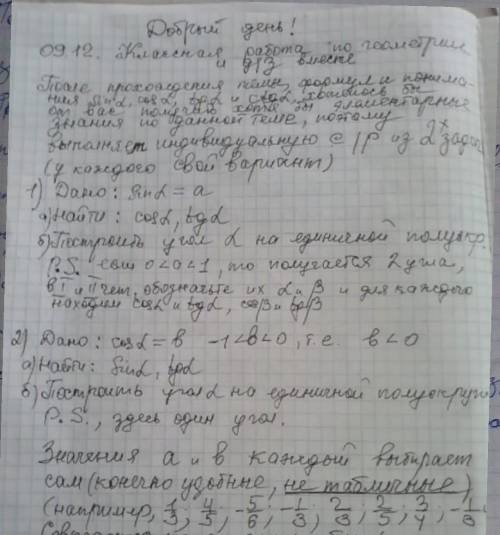 Добрый день!
09.12. Классная работа по геометрии
и д/з вместе
После прохождения темы, формул и понима-
ния sinα, cosα, tgα и ctgα, хотелось бы
от вас получить хотя бы элементарные
знания по данной теме, поэтому
выполняет индивидуальную с/р из 2х задач
(у каждого свой вариант)
1) Дано: sinα = a
а) Найти: cosα, tgα
б) Построить угол α на единичной полуокр.
P.S. если 0<a<1, то получается 2 угла,
в I и II чет, обозначьте их α и β и для каждого
находим cosα и tgα, cosβ и tgβ
2) Дано: cosα = в -1<в<0, т.е. в<0
а) Найти: sinα, tgα
б) Построить угол α на единичной полуокруж
P.S., здесь один угол.
Значения а и в каждый выбирает
сам (конечно удобные, не табличные)
(например, 1/3; 4/5; -5/6; -1/3; 2/3; 2/5; 3/4; -1/3